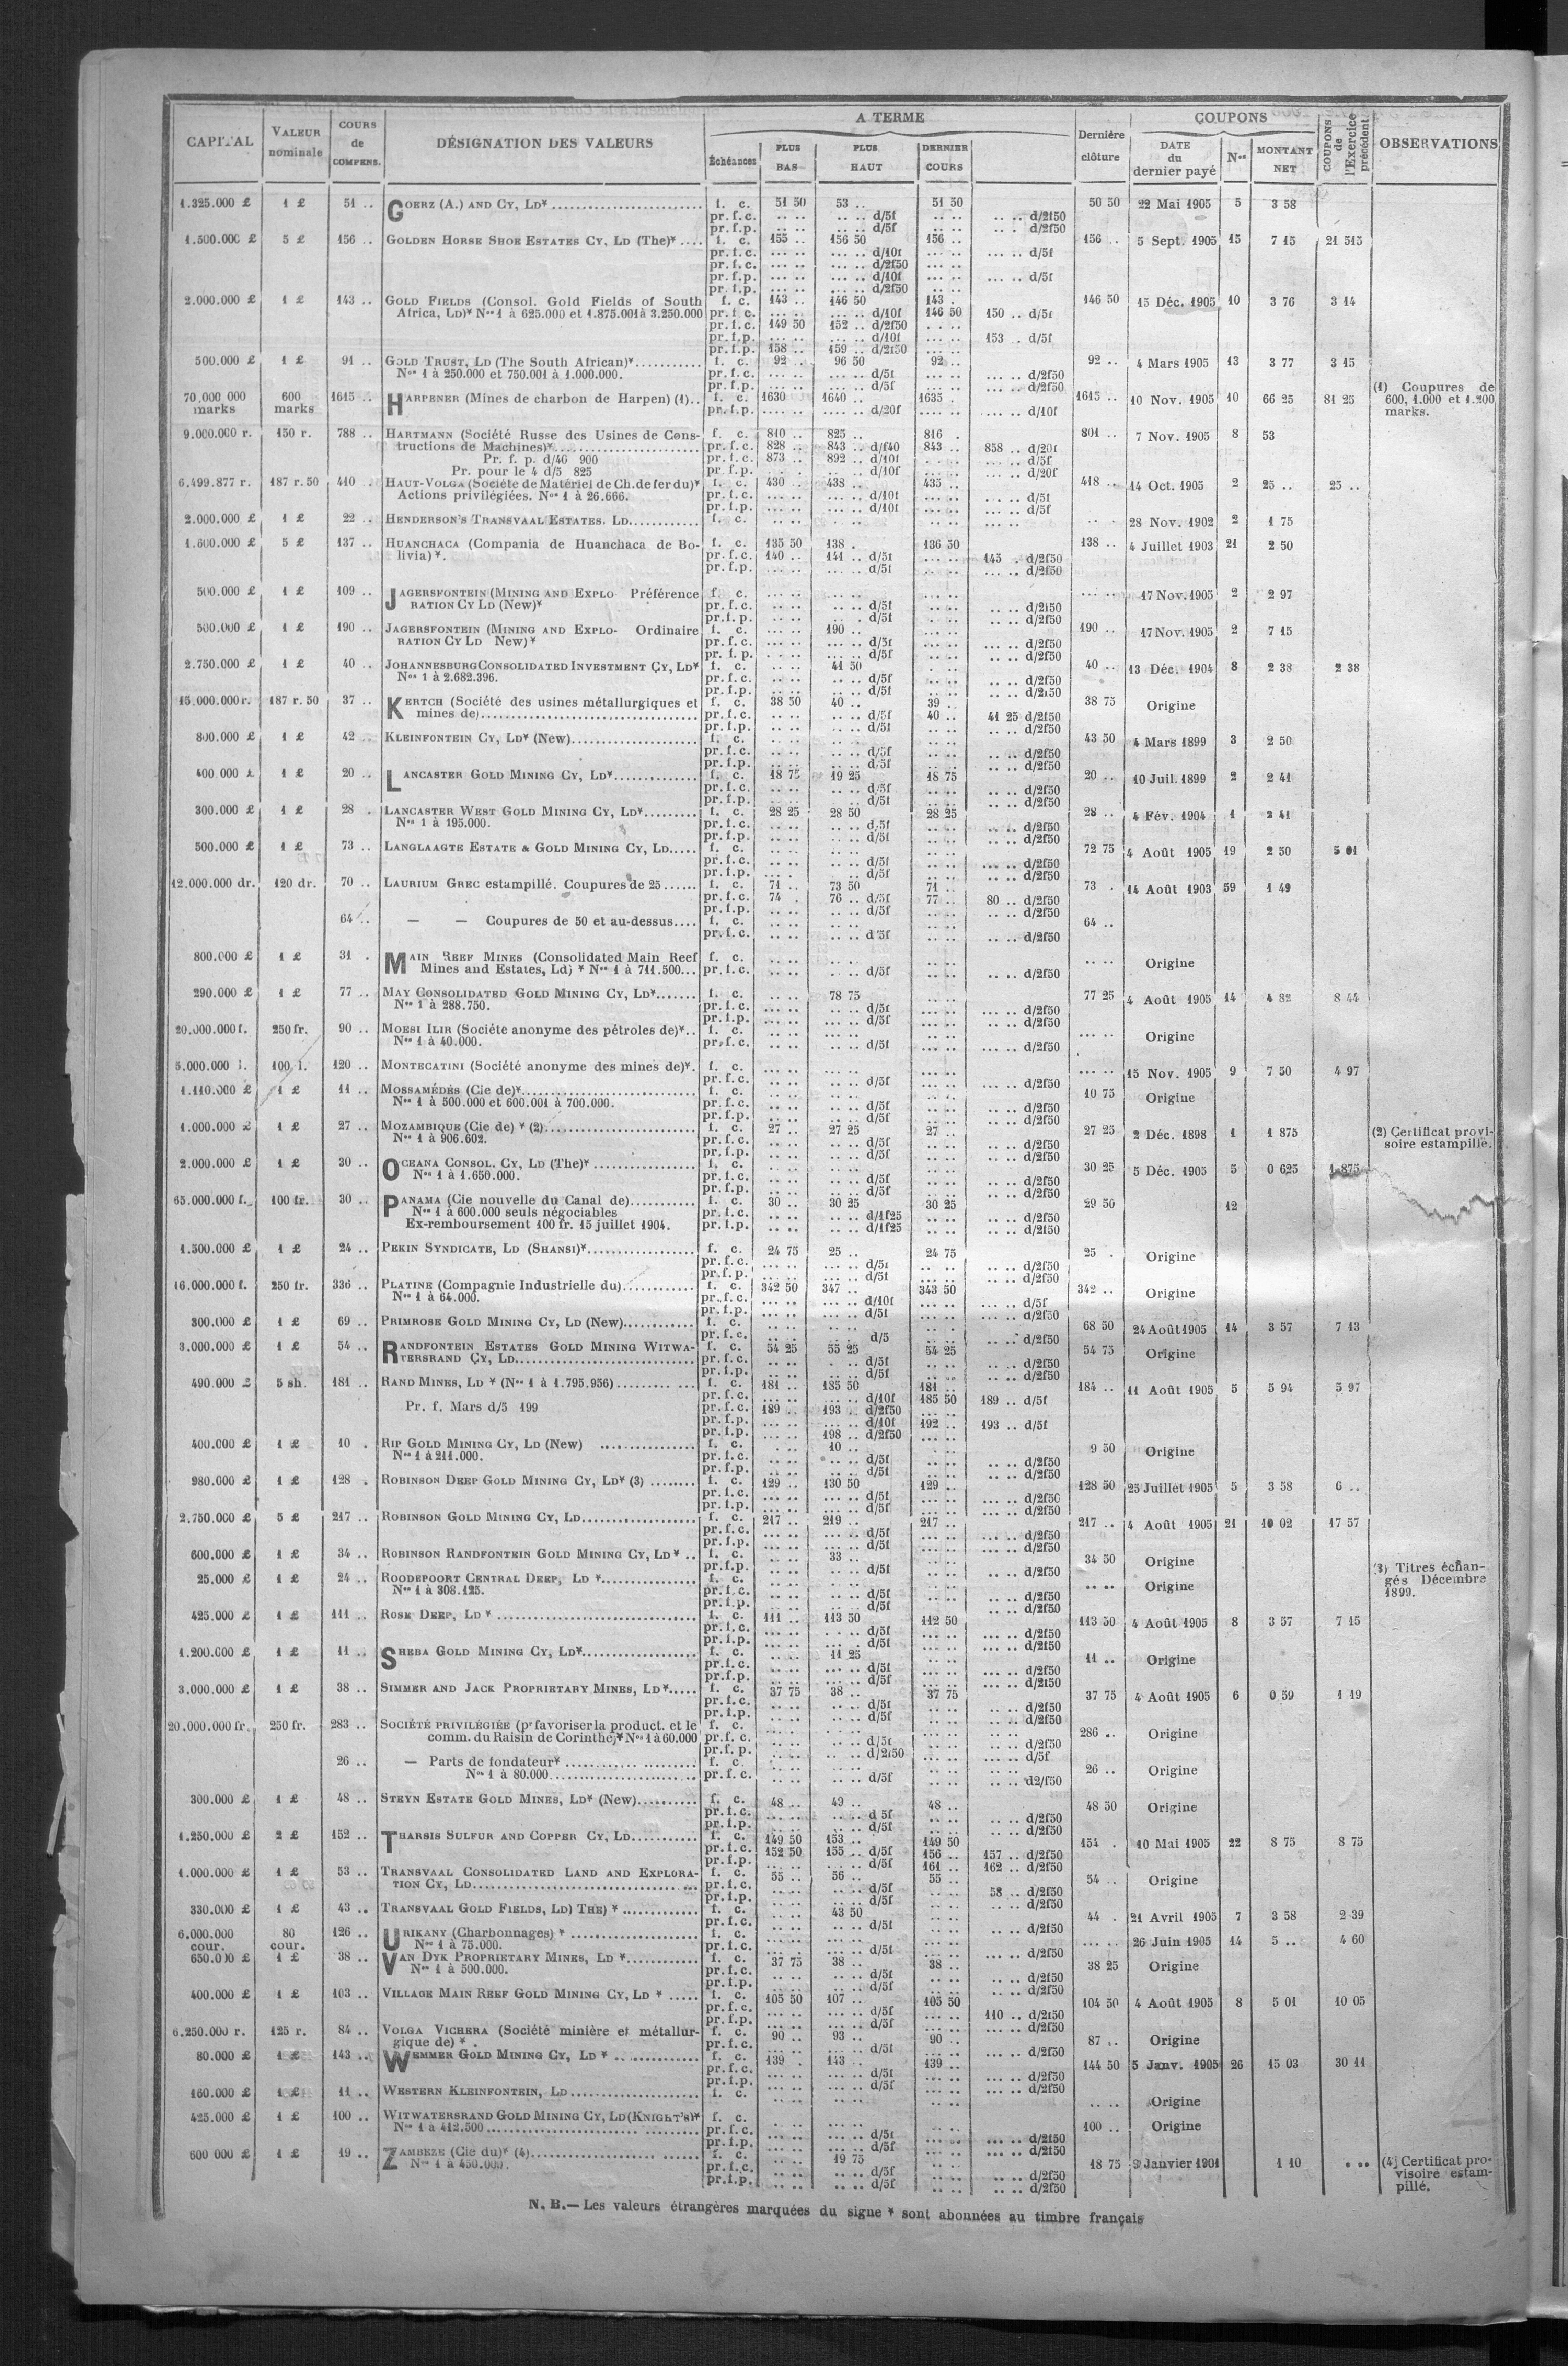 CAPITAL VALEUR nominale COURS de COMPENS. DÉSIGNATION DES VALEURS A TERME Échéances PLUS BAS PLUS HAUT DERNIER COURS Dernière clôture COUPONS DATE du dernier payé Nos MONTANT NET COUPONS de l'Exercice précédent OBSERVATIONS
1.325.000 £ 1 £ 51 .. GOERZ (A.) AND CY, LD* f. c. 51 50 53 .. 51 50 50 50 22 Mai 1905 5 3 58
pr. f. c. .. .. .. .. d/5f .. .. .. .. d/2f50
pr. f. p. .. .. .. .. d/5f .. .. .. . d/2f50
1.500.000 £ 5 £ 156 .. GOLDEN HORSE SHOE ESTATES CY, LD (The)* .... f. c. 155 .. 156 50 156 .. 156 .. 5 Sept. 1905 15 7 15 21 515
pr. f. c. ... .. ... .. d/10f ... .. ... .. d/5f
pr. f. c. ... .. ... .. d/2f50 ... ..
pr. f. p. ... .. ... .. d/10f ... .. ... .. d/5f
pr. f. p. ... .. ... .. d/2f50 ... ..
2.000.000 £ 1 £ 143 .. GOLD FIELDS (Consol. Gold Fields of South f. c. 143 .. 146 50 143 . 146 50 15 Déc. 1905 10 3 76 3 14
Africa, LD)* Nos 1 à 625.000 et 1.875.001 à 3.250.000 pr. f. c. ... .. ... .. d/10f 146 50 150 .. d/5f
pr. f. c. 149 50 152 .. d/2f50
pr. f. p. ... .. ... .. d/10f ... .. 153 .. d/5f
pr. f. p. 158 .. 159 .. d/2f50
500.000 £ 1 £ 91 .. GOLD TRUST, LD (The South African)* f. c. 92 .. 96 50 92 .. 92 .. 4 Mars 1905 13 3 77 3 15
Nos 1 à 250.000 et 750.001 à 1.000.000. pr. f. c. ... .. ... .. d/5f ... .. ... .. d/2f50
pr. f. p. ... .. ... .. d/5f ... .. ... .. d/2f50
70.000 000 marks 600 marks 1615 .. HARPENER (Mines de charbon de Harpen) (1).. f. c. 1630 1640 .. 1635 . 1615 .. 10 Nov. 1905 10 66 25 81 25 (1) Coupures de 600, 1.000 et 1.200 marks.
pr. f. p. .... .. .... .. d/20f .... .. .... .. d/10f
9.000.000 r. 150 r. 788 .. HARTMANN (Société Russe des Usines de Cons- f. c. 810 .. 825 .. 816 . 801 .. 7 Nov. 1905 8 53
tructions de Machines)* pr. f. c. 828 .. 843 .. d/f40 843 .. 858 .. d/20f
Pr. f. p. d/40 900 pr. f. c. 873 .. 892 .. d/10f ... .. d/5f
Pr. pour le 4 d/5 825 pr. f. p. ... .. d/10f ... .. d/20f
6.499.877 r. 187 r. 50 410 .. HAUT-VOLGA (Société de Matériel de Ch. de fer du)* f. c. 430 .. 438 .. 435 .. 418 .. 14 Oct. 1905 2 25 .. 25 ..
Actions privilégiées. Nos 1 à 26.666. pr. f. c. ... .. ... .. d/10f ... .. ... .. d/5f
pr. f. p. ... .. ... .. d/10f ... .. ... .. d/5f
2.000.000 £ 1 £ 22 .. HENDERSON'S TRANSVAAL ESTATES. LD f. c. 28 Nov. 1902 2 1 75
1.600.000 £ 5 £ 137 .. HUANCHACA (Compania de Huanchaca de Bo- f. c. 135 50 138 . 136 50 138 .. 4 Juillet 1903 21 2 50
livia)*. pr. f. c. 140 .. 141 .. d/5f ... .. 145 . d/2f50
pr. f. p. ... .. ... .. d/5f ... .. d/2f50
500.000 £ 1 £ 109 .. JAGERSFONTEIN (MINING AND EXPLO Préférence f. c. 17 Nov. 1905 2 2 97
RATION CY LD (New)* pr. f. c. .. .. d/5f .. .. d/2f50
pr. f. p. .. . d/5f .. .. d/2f50
500.000 £ 1 £ 190 .. JAGERSFONTEIN (MINING AND EXPLO- Ordinaire f. c. ... .. 190 .. 190 .. 17 Nov. 1905 2 7 15
RATION CY LD New)* pr. f. c. ... .. d/5f .. .. d/2f50
pr. f. p. ... .. d/5f .. .. d/2f50
2.750.000 £ 1 £ 40 .. JOHANNESBURG CONSOLIDATED INVESTMENT CY, LD* f. c. .. .. 41 50 40 .. 13 Déc. 1904 8 2 38 2 38
Nos 1 à 2.682.396. pr. f. c. .. .. d/5f .. .. d/2f50
pr. f. p. .. .. d/5f .. .. d/2f50
15.000.000 r. 187 r. 50 37 .. KERTCH (Société des usines métallurgiques et f. c. 38 50 40 .. 39 .. 38 75 Origine
mines de) pr. f. c. .. .. .. .. d/5f 40 .. 41 25 d/2f50
pr. f. p. .. .. .. .. d/5f .. .. .. .. d/2f50
800.000 £ 1 £ 42 .. KLEINFONTEIN CY, LD* (New) f. c. 43 50 4 Mars 1899 3 2 50
pr. f. c. .. .. d/5f .. .. d/2f50
pr. f. p. .. .. d/5f .. .. d/2f50
400.000 £ 1 £ 20 .. LANCASTER GOLD MINING CY, LD* f. c. 18 75 19 25 18 75 20 .. 10 Juil. 1899 2 2 41
pr. f. c. .. .. d/5f .. .. d/2f50
pr. f. p. .. .. d/5f .. .. d/2f50
300.000 £ 1 £ 28 . LANCASTER WEST GOLD MINING CY, LD* f. c. 28 25 28 50 28 25 28 .. 4 Fév. 1904 1 2 41
Nos 1 à 195.000. pr. f. c. .. .. d/5f .. .. d/2f50
pr. f. p. .. .. d/5f .. .. d/2f50
500.000 £ 1 £ 73 .. LANGLAAGTE ESTATE & GOLD MINING CY, LD f. c. 72 75 4 Août 1905 19 2 50 5 01
pr. f. c. .. .. d/5f ... .. d/2f50
pr. f. p. .. .. d/5f .. .. d/2f50
12.000.000 dr. 120 dr. 70 .. LAURIUM GREC estampillé. Coupures de 25 f. c. 71 .. 73 50 71 .. 73 . 14 Août 1903 59 1 49
pr. f. c. 74 . 76 .. d/5f 77 .. 80 .. d/2f50
pr. f. p. .. .. .. .. d/5f .. .. d/2f50
64 .. — — Coupures de 50 et au-dessus f. c. 64 ..
pr. f. c. .. .. d/5f .. .. d/2f50
800.000 £ 1 £ 31 . MAIN REEF MINES (Consolidated Main Reef f. c. Origine
Mines and Estates, Ld) * Nos 1 à 711.500... pr. f. c. .. .. d/5f .. .. d/2f50
290.000 £ 1 £ 77 .. MAY CONSOLIDATED GOLD MINING CY, LD* f. c. .. .. 78 75 77 25 4 Août 1905 14 4 82 8 44
Nos 1 à 288.750. pr. f. c. ... .. d/5f ... .. d/2f50
pr. f. p. ... .. d/5f .. .. d/2f50
20.000.000 f. 250 fr. 90 .. MORSI ILIR (Société anonyme des pétroles de)*.. f. c. Origine
Nos 1 à 40.000. pr. f. c. .. .. d/5f ... .. d/2f50
5.000.000 l. 100 l. 120 .. MONTECATINI (Société anonyme des mines de)*. f. c. 15 Nov. 1905 9 7 50 4 97
pr. f. c. .. .. d/5f ... .. d/2f50
1.110.000 £ 1 £ 11 .. MOSSAMÉDÈS (Cie de)* f. c. 10 75 Origine
Nos 1 à 500.000 et 600.001 à 700.000. pr. f. c. .. .. d/5f .. .. d/2f50
pr. f. p. .. .. d/5f .. .. d/2f50
1.000.000 £ 1 £ 27 .. MOZAMBIQUE (Cie de) * (2) f. c. 27 .. 27 25 27 .. 27 25 2 Déc. 1898 1 1 875 (2) Certificat provi- soire estampillé.
Nos 1 à 906.602. pr. f. c. .. .. d/5f .. .. d/2f50
pr. f. p. .. .. d/5f .. .. d/2f50
2.000.000 £ 1 £ 30 .. OCEANA CONSOL. CY, LD (The)* f. c. 30 25 5 Déc. 1905 5 0 625 1 875
Nos 1 à 1.650.000. pr. f. c. .. .. d/5f .. .. d/2f50
pr. f. p. .. .. d/5f .. .. d/2f50
65.000.000 f. 100 fr. 30 .. PANAMA (Cie nouvelle du Canal de) f. c. 30 .. 30 25 30 25 29 50 12
Nos 1 à 600.000 seuls négociables pr. f. c. .. .. d/1f25 .. .. d/2f50
Ex-remboursement 100 fr. 15 juillet 1904. pr. f. p. .. .. d/1f25 .. .. d/2f50
1.500.000 £ 1 £ 24 .. PEKIN SYNDICATE, LD (SHANSI)* f. c. 24 75 25 .. 24 75 25 . Origine
pr. f. c. ... .. d/5f .. .. d/2f50
pr. f. p. ... .. d/5f .. .. d/2f50
16.000.000 f. 250 fr. 336 .. PLATINE (Compagnie Industrielle du) f. c. 342 50 347 .. 343 50 342 .. Origine
Nos 1 à 64.000. pr. f. c. ... .. d/10f ... .. d/5f
pr. f. p. ... .. d/5f ... .. d/2f50
300.000 £ 1 £ 69 .. PRIMROSE GOLD MINING CY, LD (New) f. c. 68 50 24 Août 1905 14 3 57 7 13
pr. f. c. .. .. d/5 .. .. d/2f50
3.000.000 £ 1 £ 54 .. RANDFONTEIN ESTATES GOLD MINING WITWA- f. c. 54 25 55 25 54 25 54 75 Origine
TERSRAND CY, LD pr. f. c. .. .. d/5f .. .. d/2f50
pr. f. p. .. .. d/5f .. .. d/2f50
490.000 £ 5 sh. 181 .. RAND MINES, LD * (Nos 1 à 1.795.956) f. c. 181 .. 185 50 181 .. 184 .. 11 Août 1905 5 5 94 5 97
pr. f. c. ... .. ... .. d/10f 185 50 189 .. d/5f
Pr. f. Mars d/5 199 pr. f. c. 189 .. 193 .. d/2f50
pr. f. p. ... .. ... .. d/10f 192 .. 193 .. d/5f
pr. f. p. ... .. 198 .. d/2f50
400.000 £ 1 £ 10 . RIP GOLD MINING CY, LD (New) f. c. 10 .. 9 50 Origine
Nos 1 à 211.000. pr. f. c. .. .. d/5f .. .. d/2f50
pr. f. p. .. .. d/5f .. .. d/2f50
980.000 £ 1 £ 128 . ROBINSON DEEP GOLD MINING CY, LD* (3) f. c. 129 .. 130 50 129 .. 128 50 25 Juillet 1905 5 3 58 6 ..
pr. f. c. ... .. d/5f ... .. d/2f50
pr. f. p. ... .. d/5f ... .. d/2f50
2.750.000 £ 5 £ 217 .. ROBINSON GOLD MINING CY, LD f. c. 217 .. 219 .. 217 .. 217 .. 4 Août 1905 21 10 02 17 57
pr. f. c. ... .. d/5f ... .. d/2f50
pr. f. p. ... .. d/5f ... .. d/2f50
600.000 £ 1 £ 34 .. ROBINSON RANDFONTEIN GOLD MINING CY, LD* .. f. c. 33 .. 34 50 Origine
pr. f. p. .. .. d/5f .. .. d/2f50
25.000 £ 1 £ 24 .. ROODEPOORT CENTRAL DEEP, LD * f. c. .. .. Origine (3) Titres échan- gés Décembre 1899.
Nos 1 à 308.125. pr. f. c. .. .. d/5f .. .. d/2f50
pr. f. p. .. .. d/5f .. .. d/2f50
425.000 £ 1 £ 111 .. ROSE DEEP, LD * f. c. 111 .. 113 50 112 50 113 50 4 Août 1905 8 3 57 7 15
pr. f. c. .. .. d/5f ... .. d/2f50
pr. f. p. ... . d/5f ... .. d/2f50
1.200.000 £ 1 £ 11 .. SHEBA GOLD MINING CY, LD* f. c. 11 25 11 .. Origine
pr. f. c. ... .. d/5f ... .. d/2f50
pr. f. p. ... .. d/5f ... .. d/2f50
3.000.000 £ 1 £ 38 .. SIMMER AND JACK PROPRIETARY MINES, LD* f. c. 37 75 38 .. 37 75 37 75 4 Août 1905 6 0 59 1 19
pr. f. c. .. .. d/5f .. .. d/2f50
pr. f. p. .. .. d/5f .. .. d/2f50
20.000.000 fr. 250 fr. 283 .. SOCIÉTÉ PRIVILÉGIÉE (pr favoriser la product. et le f. c. 286 .. Origine
comm. du Raisin de Corinthe)* Nos 1 à 60.000 pr. f. c. .. .. d/5f .. .. d/2f50
pr. f. p. .. .. d/2f50 ... .. d/5f
26 .. — Parts de fondateur* f. c. 26 .. Origine
Nos 1 à 80.000 pr. f. c. .. .. d/5f .. .. d2/f50
300.000 £ 1 £ 48 .. STEYN ESTATE GOLD MINES, LD* (New) f. c. 48 .. 49 .. 48 .. 48 50 Origine
pr. f. c. .. .. d 5f .. .. d/2f50
pr. f. p. .. .. d/5f .. .. d/2f50
1.250.000 £ 2 £ 152 .. THARSIS SULFUR AND COPPER CY, LD f. c. 149 50 153 .. 149 50 154 . 10 Mai 1905 22 8 75 8 75
pr. f. c. 152 50 155 .. d/5f 156 .. 157 .. d/2f50
pr. f. p. ... .. ... .. d/5f 161 .. 162 .. d/2f50
1.000.000 £ 1 £ 53 .. TRANSVAAL CONSOLIDATED LAND AND EXPLORA- f. c. 55 .. 56 .. 55 .. 54 .. Origine
TION CY, LD pr. f. c. .. .. d/5f .. .. 58 .. d/2f50
pr. f. p. .. .. d/5f .. .. d/2f50
330.000 £ 1 £ 43 .. TRANSVAAL GOLD FIELDS, LD) THE) * f. c. 43 50 44 . 21 Avril 1905 7 3 58 2 39
pr. f. c. .. .. d/5f .. .. d/2f50
6.000.000 cour. 80 cour. 126 .. URIKANY (Charbonnages) * f. c. 26 Juin 1905 14 5 .. 4 60
Nos 1 à 75.000. pr. f. c. ... .. d/5f ... .. d/2f50
650.000 £ 1 £ 38 .. VAN DYK PROPRIETARY MINES, LD * f. c. 37 75 38 .. 38 .. 38 25 Origine
Nos 1 à 500.000. pr. f. c. .. .. d/5f .. .. d/2f50
pr. f. p. .. .. d/5f .. .. d/2f50
400.000 £ 1 £ 103 .. VILLAGE MAIN REEF GOLD MINING CY, LD * f. c. 105 50 107 .. 105 50 104 50 4 Août 1905 8 5 01 10 05
pr. f. c. ... .. d/5f ... .. 110 .. d/2f50
pr. f. p. ... .. d/5f ... .. d/2f50
6.250.000 r. 125 r. 84 .. VOLGA VICHERA (Société minière et métallur- f. c. 90 .. 93 .. 90 .. 87 .. Origine
gique de) *. pr. f. c. ... .. d/5f ... .. d/2f50
80.000 £ 1 £ 143 .. WEMMER GOLD MINING CY, LD * f. c. 139 . 143 .. 139 .. 144 50 5 Janv. 1905 26 15 03 30 11
pr. f. c. ... .. d/5f ... .. d/2f50
pr. f. p. ... .. d/5f ... .. d/2f50
160.000 £ 1 £ 11 .. WESTERN KLEINFONTEIN, LD f. c. .. .. Origine
425.000 £ 1 £ 100 .. WITWATERSRAND GOLD MINING CY, LD (KNIGHT'S)* f. c. 100 .. Origine
Nos 1 à 412.500 pr. f. c. ... .. d/5f ... .. d/2f50
pr. f. p. ... .. d/5f ... .. d/2f50
600 000 £ 1 £ 19 .. ZAMBEZE (Cie du)* (4) f. c. 19 75 18 75 9 Janvier 1901 1 10 . .. (4) Certificat pro- visoire estam- pillé.
Nos 1 à 450.000. pr. f. c. .. .. d/5f .. .. d/2f50
pr. f. p. .. .. d/5f .. .. d/2f50
N. B.— Les valeurs étrangères marquées du signe * sont abonnées au timbre français